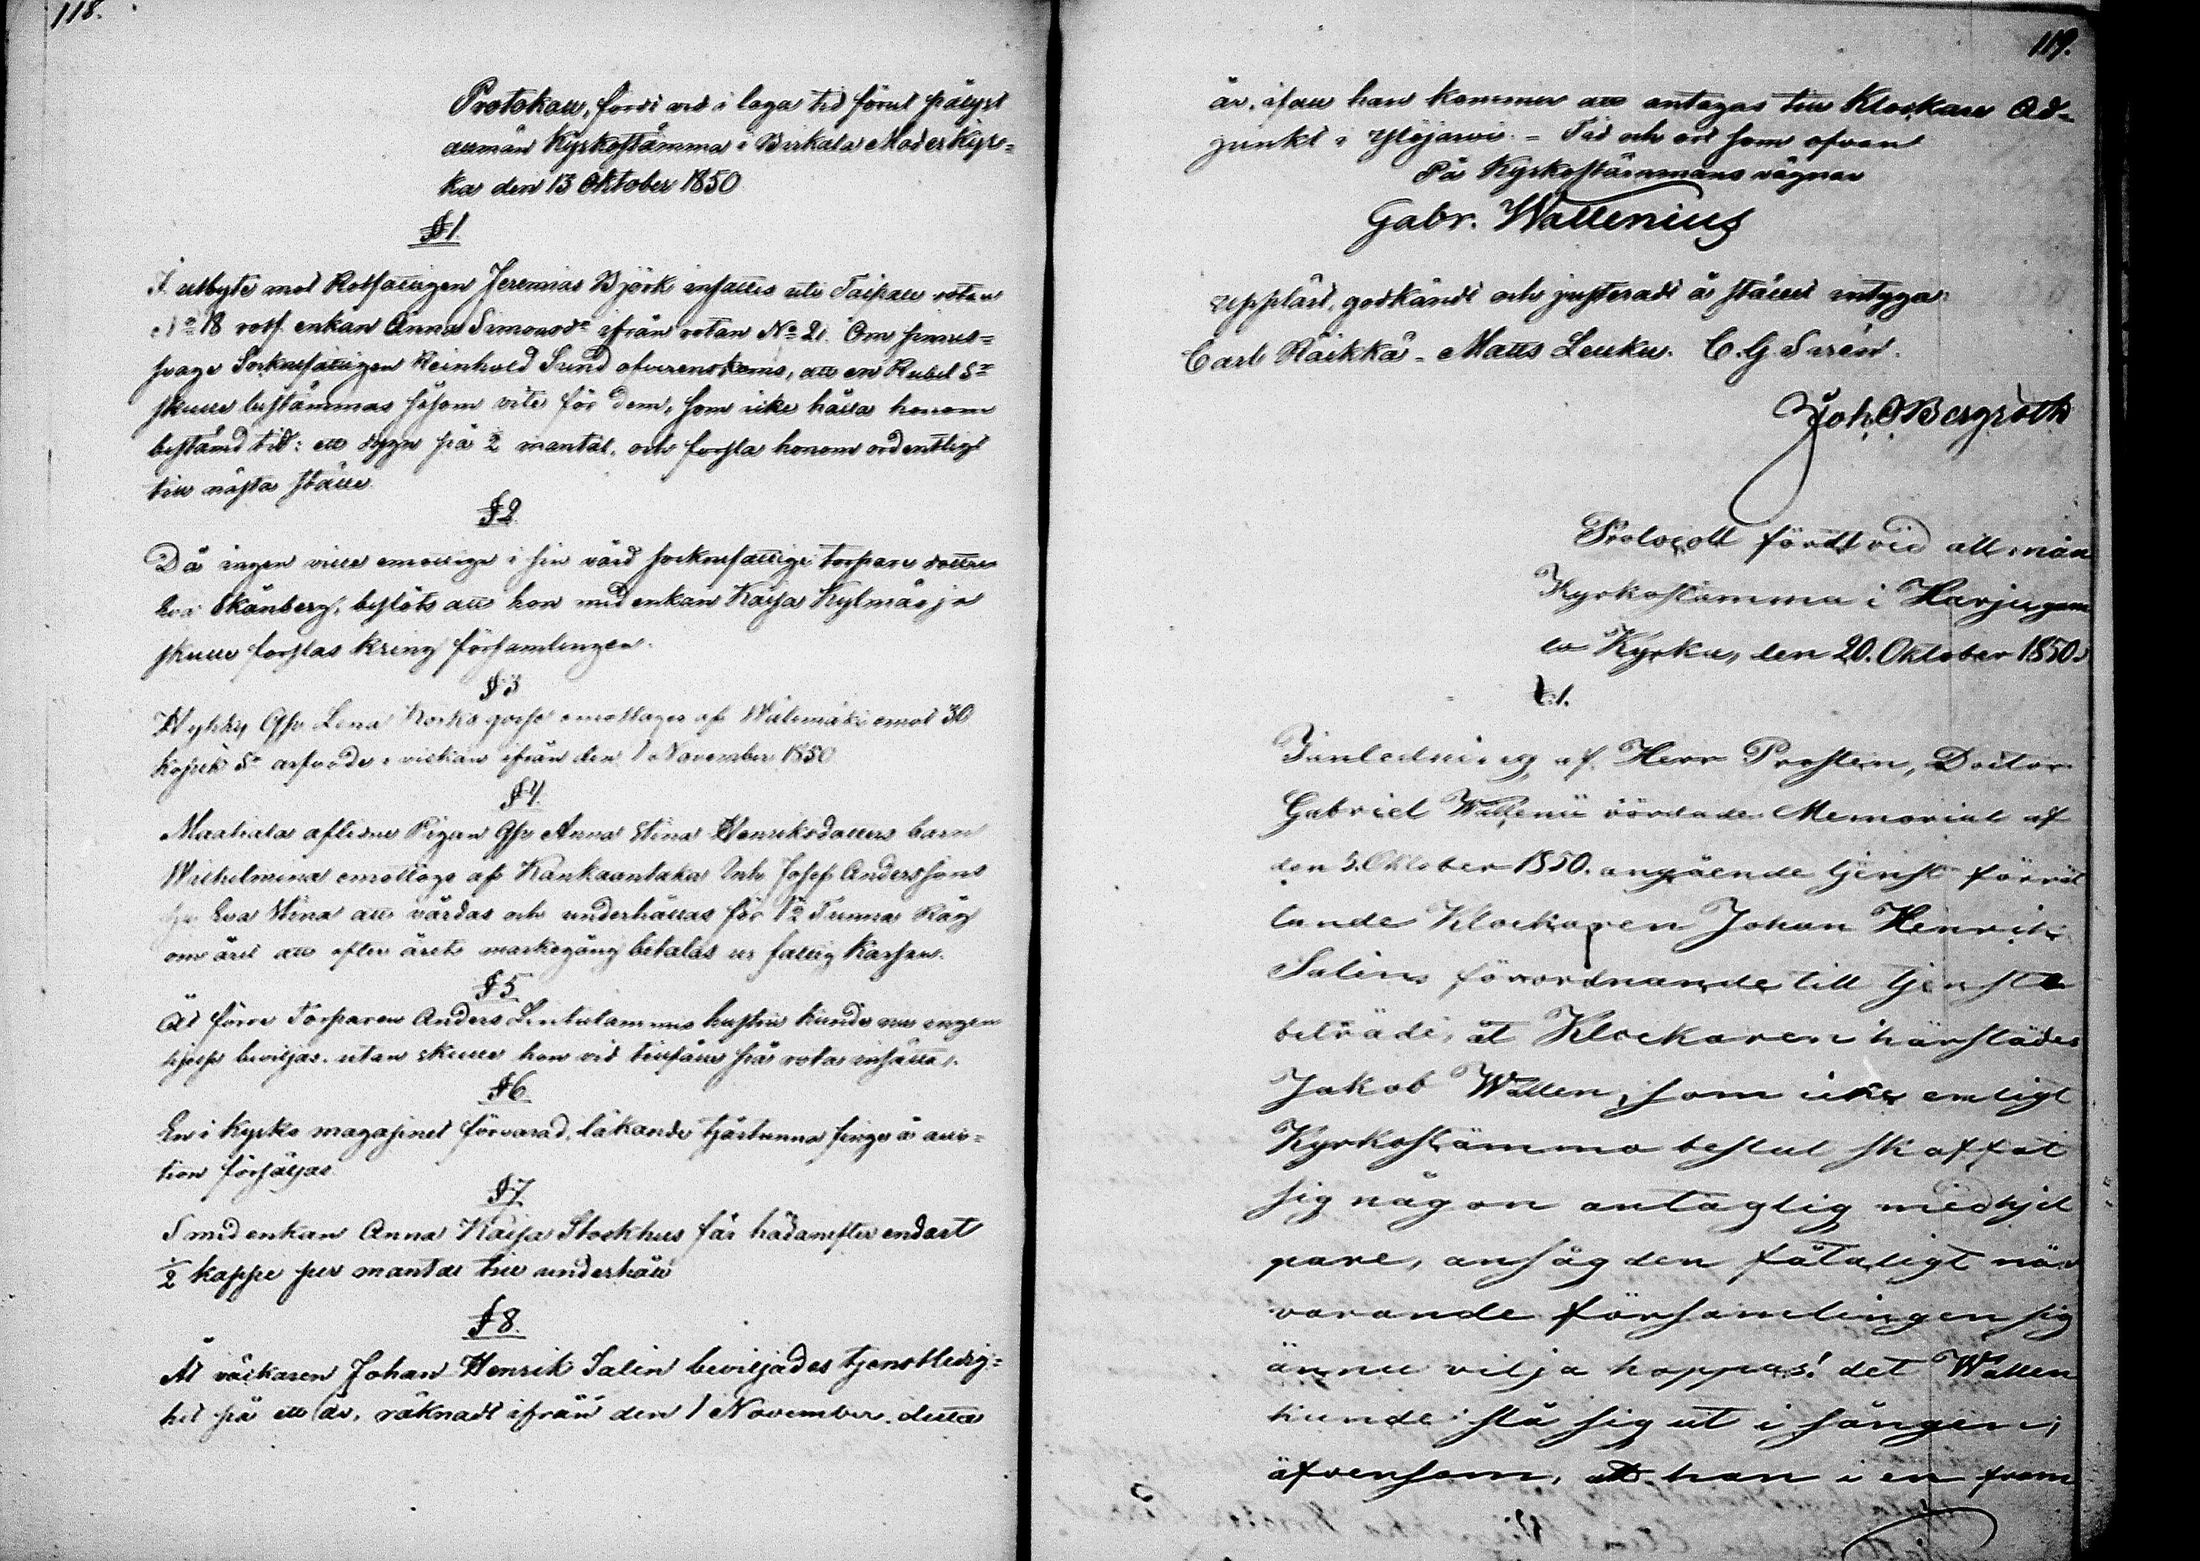 118.
Protokoll, fördt vid i laga tid förut pålyst
allmän Kyrkostämma i Birkala Moder Kyr=
ka den 13 Oktober 1850
§ 1.
I utbyte mot Rotfattigen Jeremias Björk insattes uti Taipale rotan
No 18 rotf. enkan Anna Simonsdr ifrån rotan No 21. Om
Socknefattigen Reinhold Sund öfverenskoms, att en Rubel Sr
skulle bestämmas såsom vite för dem, som icke hålla honom
bestämd tid: ett dygn på ½ mantal, och forsla honom ordentligt
till nästa ställe.
§ 2.
Då ingen ville emottaga i sin vård socknefattige torpare dottren
Eva Skånberg, beslöts att hon med enkan Kaisa Kylmäoja
skulle forslas kring församlingen.
§ 3
Hyhky Qfv. Lena gosse emottages af Wälimäki emot 30
kopek Sr arfvode i veckan ifrån den 1 November 1850
§ 4.
Maatiala aflidne Pigan Qfv Anna Stina Henriksdotters barn
Wilhelmina emottogs af Kankaantaka Inh. Josef Anderssons
hu Eva Stina att vårdas och underhållas för 1½ Tunna Råg
om året att efter årets markegång betalas ur fattig Kassan.
§ 5.
Åt förre Torparen Anders Lintulammis hustru kunde nu ingen
hjelp beviljas, utan skulle hon vid tillfälle på rota insättas.
§ 6
En i Kyrko magasinet förvarad, läkande tjärtunna finge å auk=
tion försäljas
§ 7.
Smed enkan Anna Kaisa Stockhus får hädanefter endast
½ kappe per mantal till underhåll
§ 8.
Åt klockaren Johan Henrik Salin beviljades tjenstledig=
het på ett år, räknadt ifrån den 1 November detta
119.
år, ifall han kommer att antagas till Klockare Ad=
junkt i Ylöjärvi. = Tid och ort som ofvan
På Kyrkostämmans vägnar
Gabr. Wallenius
Uppläst, godkändt och justeradt å stället intyga:
Carl Räikkä. Matts Leuku. C. G. Sirén.
Joh. O Bergroth
Protocoll fördt vid allmän
Kyrkostämma i Harjugam
la Kyrka, den 20. Oktober 1850.
§.1.
I anledning af Herr Prosten, Doctor
Gabriel Wallenii vördade Memorial af
den 5. Oktober 1850. angående tjenst förrät
tande Klockaren Johan Henrik
Salins förordnande till tjenste
beträde, åt Klockaren härstädes
Jakob Wallen, som icke enligt
Kyrkostämmo beslut skaffat
sig någon antaglig medhjel
pare, ansåg den fåtaligt när
varande församlingen sig
ännu vilja hoppas! det Wallen
kunde slå sig ut i sången,
äfvensom, att han i en fram